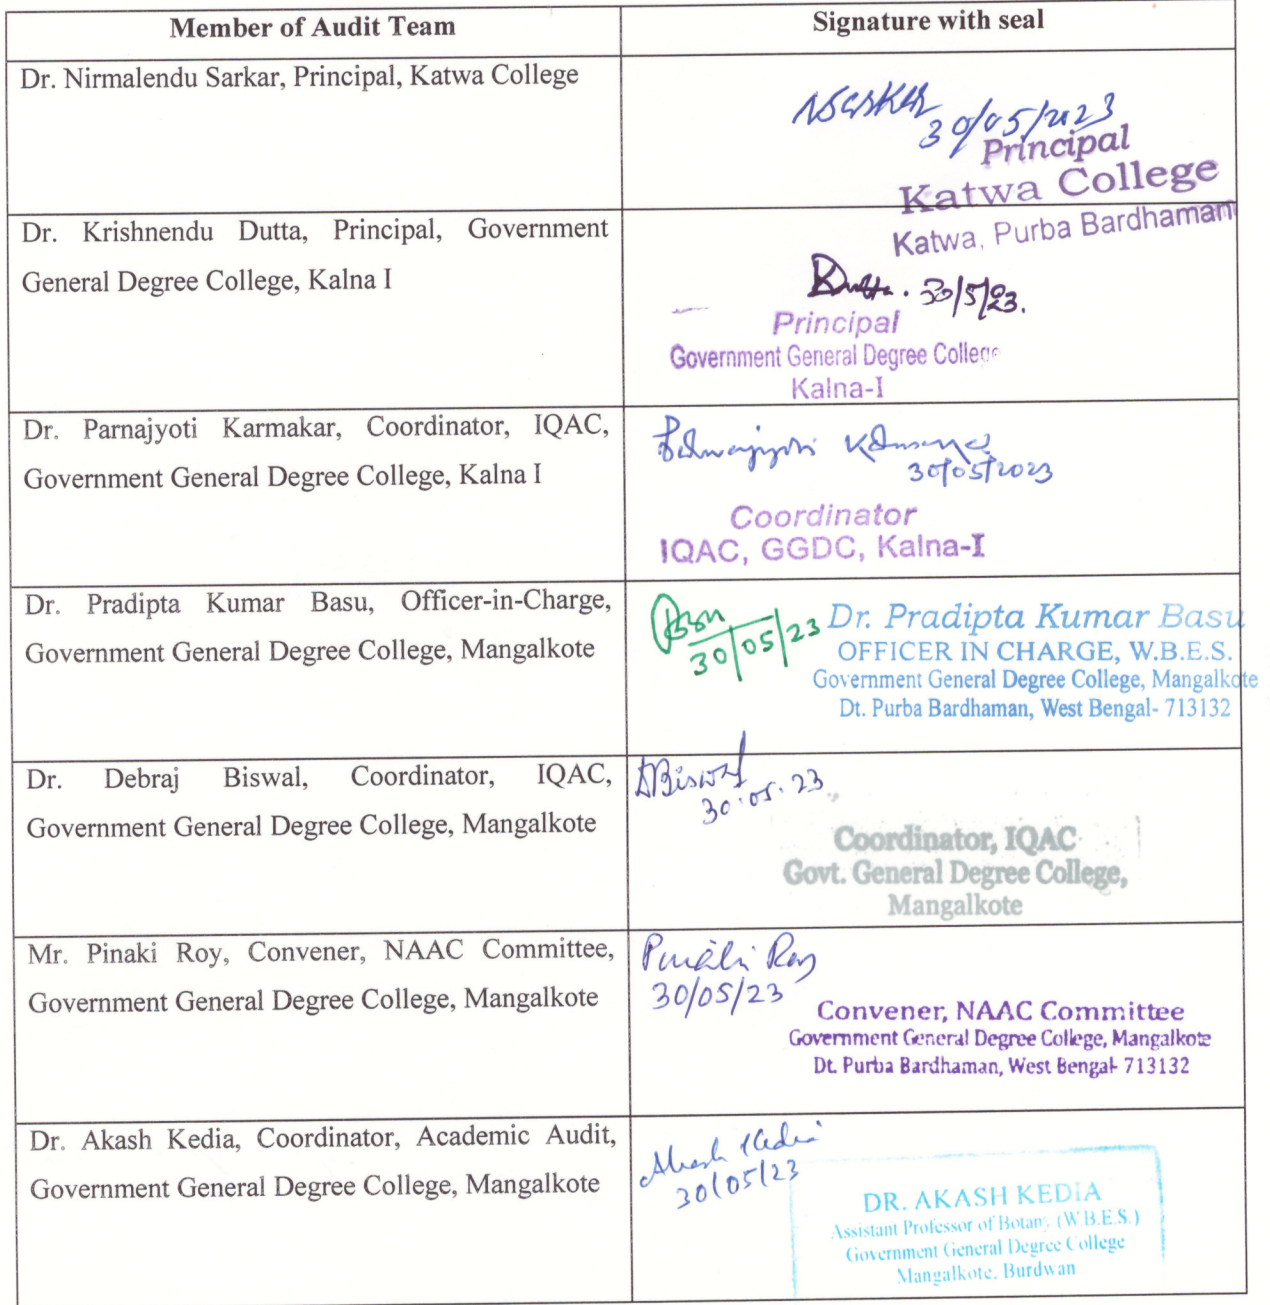 Member of Audit Team
Signature with seal
Dr. Nirmalendu Sarkar, Principal, Katwa College
NSarkar
30/05/2023
Principal
Katwa College
Katwa, Purba Bardhaman
Dr. Krishnendu Dutta, Principal, Government
General Degree College, Kalna I
KDutta. 30/5/23.
Principal
Government General Degree College
Kalna-I
Dr. Parnajyoti Karmakar, Coordinator, IQAC,
Government General Degree College, Kalna I
Parnajyoti Karmakar
30/05/2023
Coordinator
IQAC, GGDC, Kalna-I
Dr. Pradipta Kumar Basu, Officer-in-Charge,
Government General Degree College, Mangalkote
30/05/23
Dr. Pradipta Kumar Basu
OFFICER IN CHARGE, W.B.E.S.
Government General Degree College, Mangalkote
Dt. Purba Bardhaman, West Bengal- 713132
Dr. Debraj Biswal, Coordinator, IQAC,
Government General Degree College, Mangalkote
DBiswal
30.05.23
Coordinator, IQAC
Govt. General Degree College,
Mangalkote
Mr. Pinaki Roy, Convener, NAAC Committee,
Government General Degree College, Mangalkote
Pinaki Roy
30/05/23
Convener, NAAC Committee
Government General Degree College, Mangalkote
Dt. Purba Bardhaman, West Bengal- 713132
Dr. Akash Kedia, Coordinator, Academic Audit,
Government General Degree College, Mangalkote
Akash Kedia
30/05/23
DR. AKASH KEDIA
Assistant Professor of Botany (W.B.E.S.)
Government General Degree College
Mangalkote, Burdwan